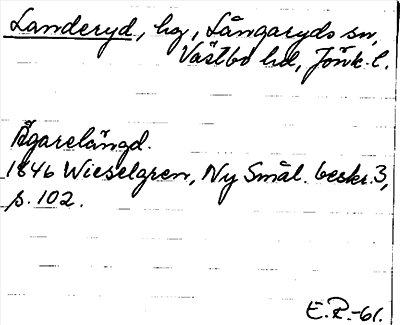 Landeryd, hg, Långaryds sn,
Västbo hd, Jönk. l.
Ägarelängd.
1846 Wieselgren, Ny Smål. beskr. 3,
p. 102.
E.R.-61.